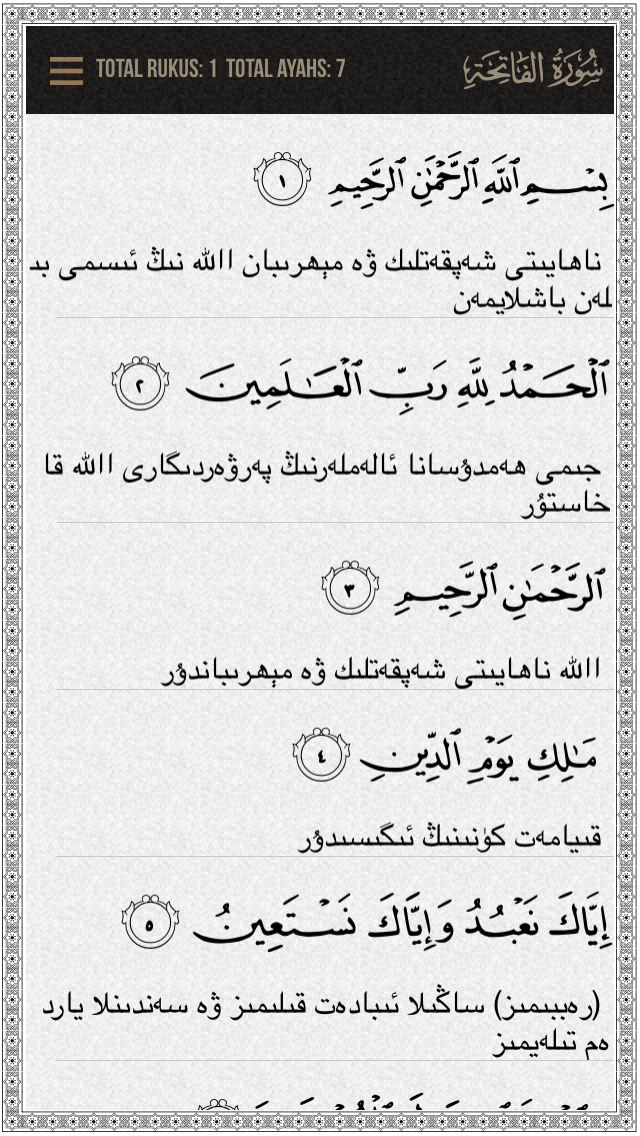 TOTAL RUKUS: 1 TOTAL AYAHS: 7
سُوْرَةُ الْفَاتِحَةِ
بِسْمِ ٱللَّهِ ٱلرَّحْمَٰنِ ٱلرَّحِيمِ ١
ناھايىتى شەپقەتلىك ۋە مېھرىبان اللە نىڭ ئىسمى بى
لەن باشلايمەن
ٱلْحَمْدُ لِلَّهِ رَبِّ ٱلْعَٰلَمِينَ ٢
جىمى ھەمدۇسانا ئالەملەرنىڭ پەرۋەردىگارى اللە قا
خاستۇر
ٱلرَّحْمَٰنِ ٱلرَّحِيمِ ٣
اللە ناھايىتى شەپقەتلىك ۋە مېھرىباندۇر
مَٰلِكِ يَوْمِ ٱلدِّينِ ٤
قىيامەت كۈنىنىڭ ئىگىسىدۇر
إِيَّاكَ نَعْبُدُ وَإِيَّاكَ نَسْتَعِينُ ٥
(رەببىمىز) ساڭىلا ئىبادەت قىلىمىز ۋە سەندىنلا يارد
ەم تىلەيمىز